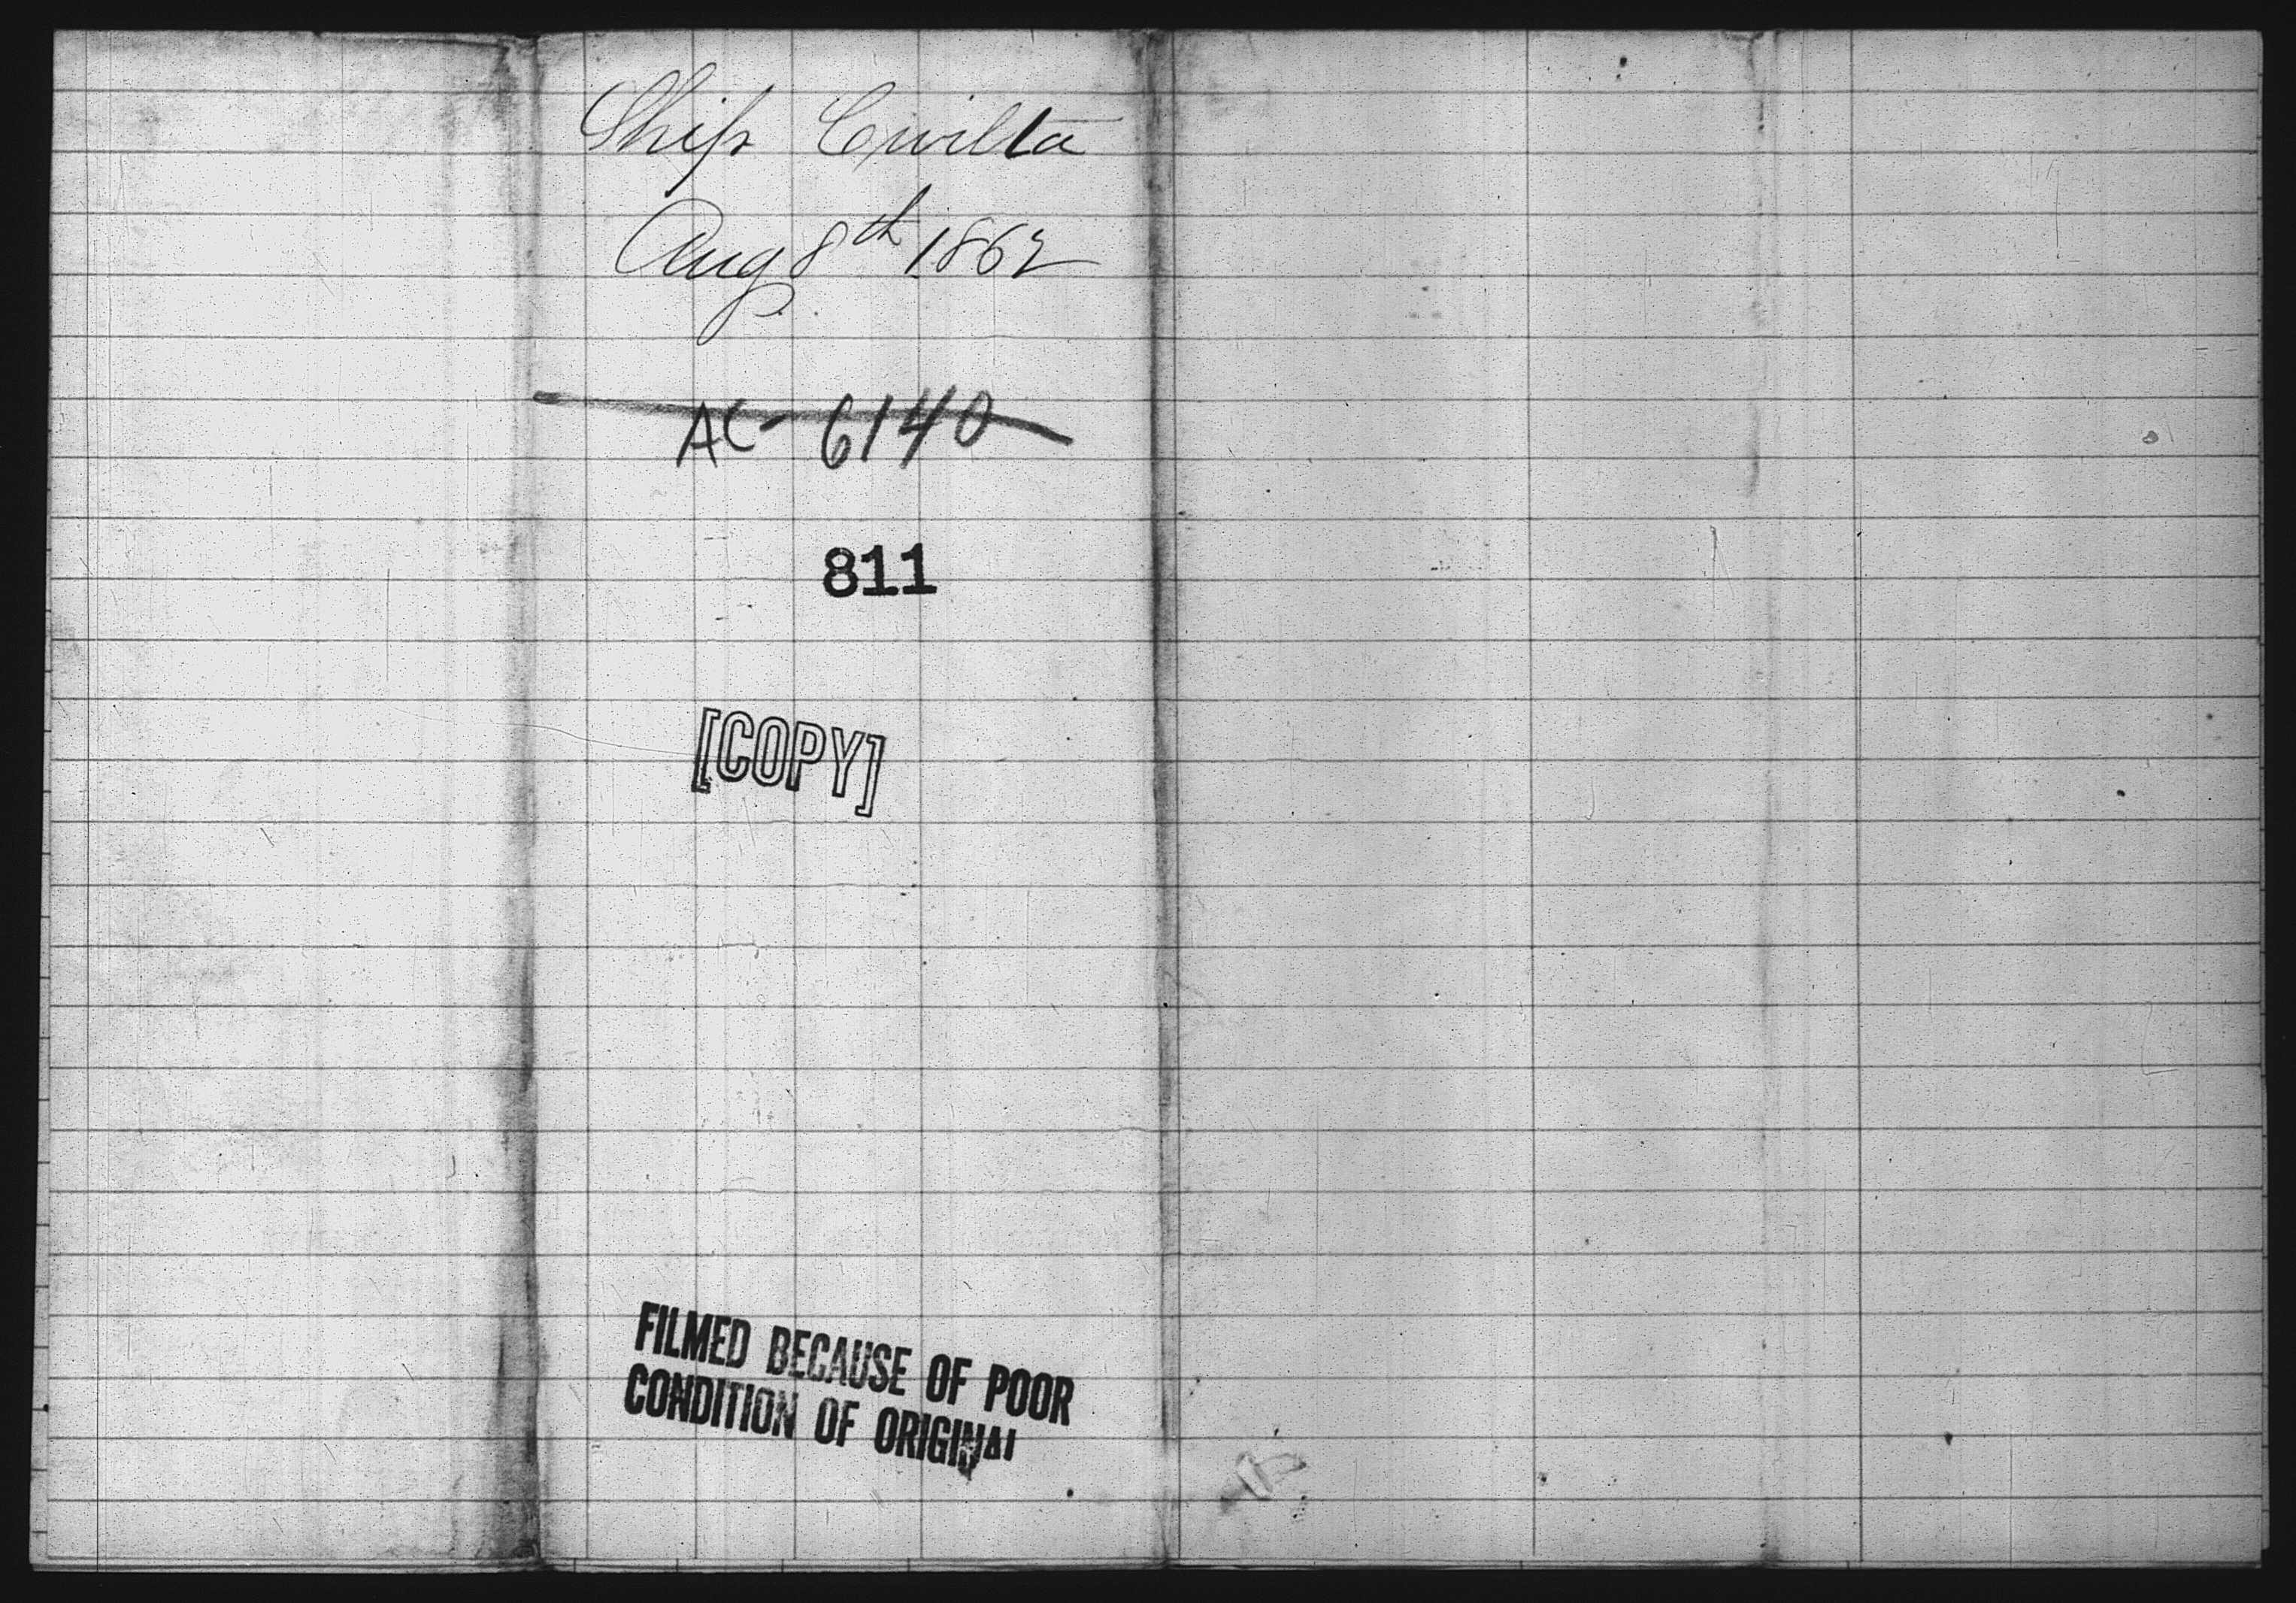 Ship Civilta
Aug 8th 1862
AC- 6140
811
[COPY]
FILMED BECAUSE OF POOR
CONDITION OF ORIGINAL